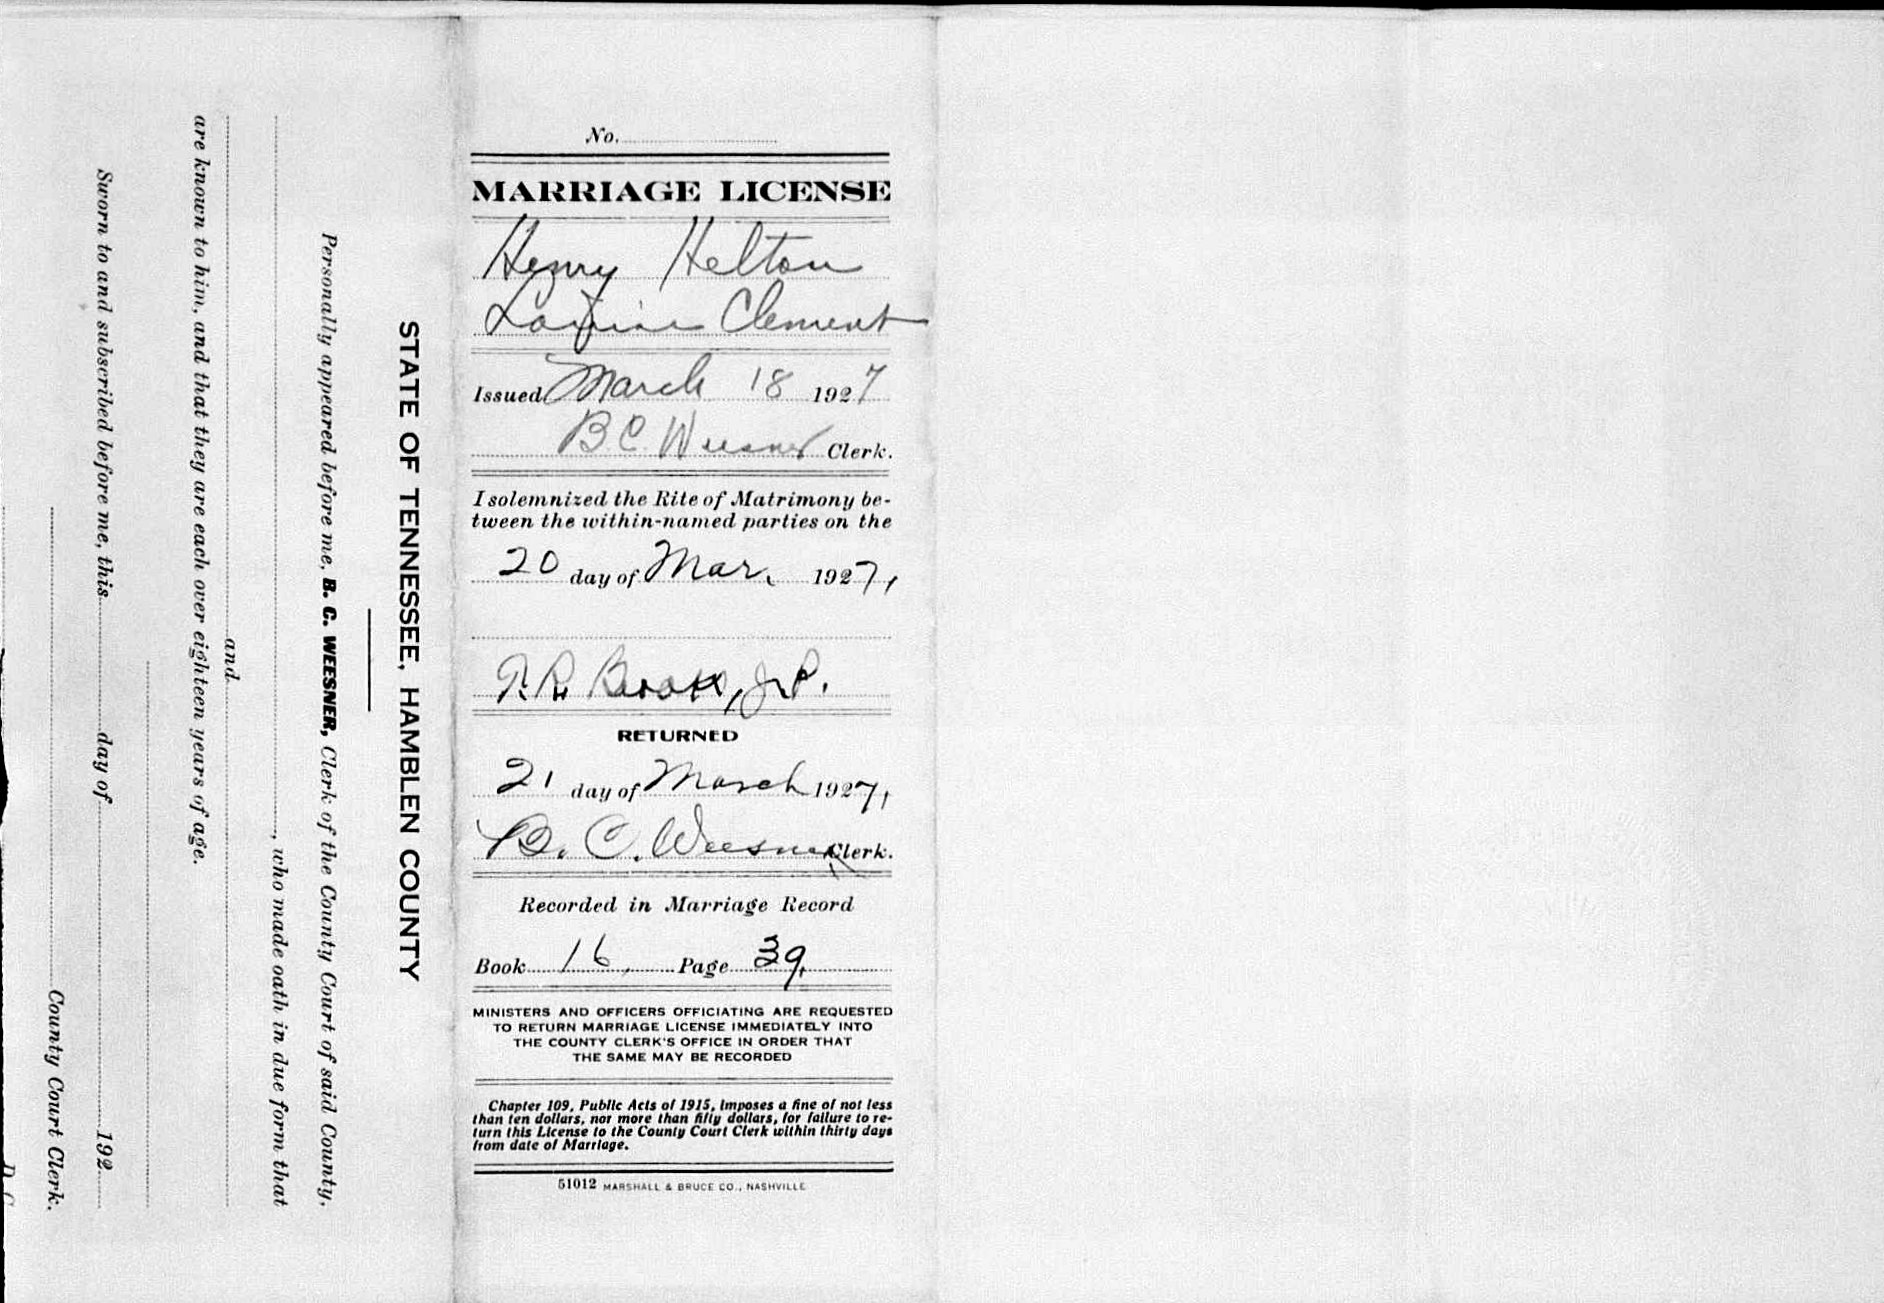 No.
MARRIAGE LICENSE
Henry Helton
Clement
Issued March 18 1927
B. C. Weesner Clerk.
I solemnized the Rite of Matrimony be-
tween the within-named parties on the
20 day of Mar. 1927,
J.P.
RETURNED
21 day of March 1927,
B. C. Weesner Clerk.
Recorded in Marriage Record
Book 16, Page 39.
MINISTERS AND OFFICERS OFFICIATING ARE REQUESTED
TO RETURN MARRIAGE LICENSE IMMEDIATELY INTO
THE COUNTY CLERK'S OFFICE IN ORDER THAT
THE SAME MAY BE RECORDED
Chapter 109, Public Acts of 1915, imposes a fine of not less
than ten dollars, nor more than fifty dollars, for failure to re-
turn this License to the County Court Clerk within thirty days
from date of Marriage.
51012 MARSHALL & BRUCE CO., NASHVILLE
STATE OF TENNESSEE, HAMBLEN COUNTY
Personally appeared before me, B. C. WEESNER, Clerk of the County Court of said County,
, who made oath in due form that
and
are known to him, and that they are each over eighteen years of age.
Sworn to and subscribed before me, this day of 192
County Court Clerk.